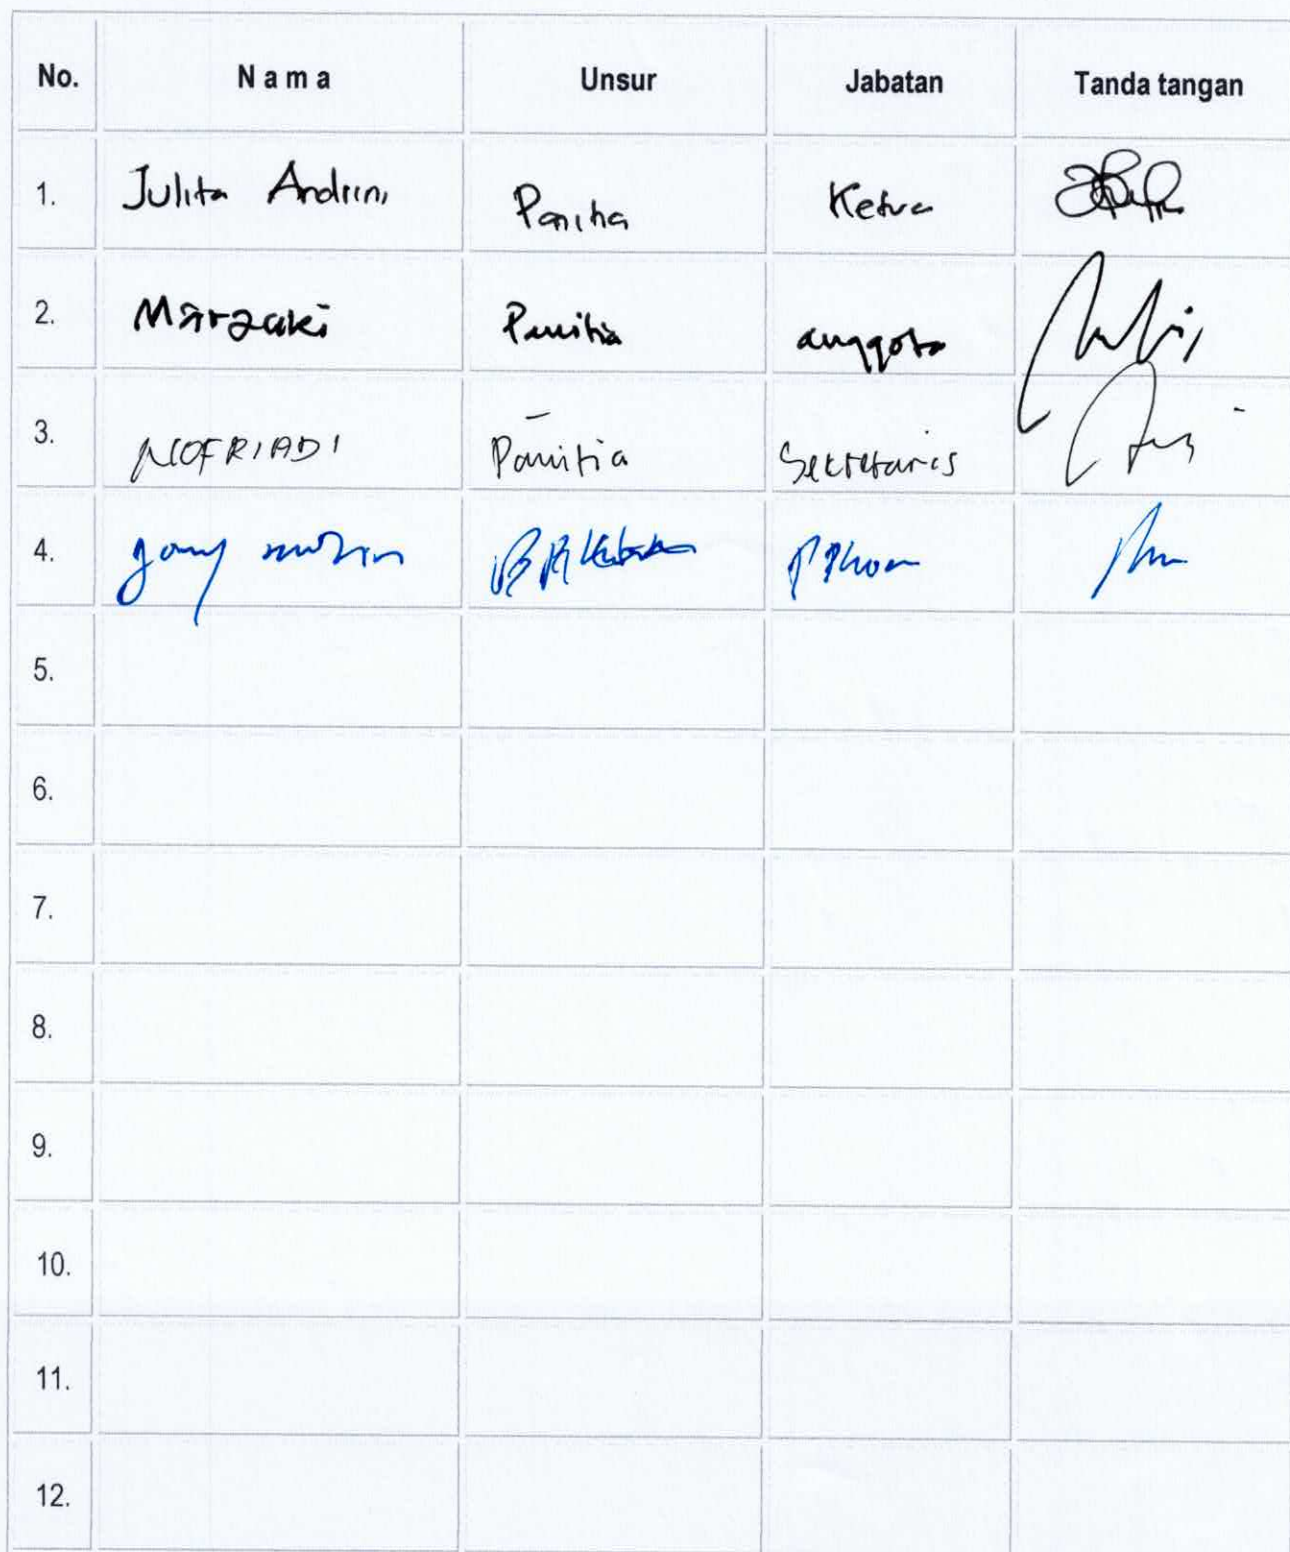 No. N a m a Unsur Jabatan Tanda tangan
1. Julita Andrini Panitia Ketua
2. Marzaki Panitia anggota
3. NOFRIADI Panitia Sekretaris
4.
5.
6.
7.
8.
9.
10.
11.
12.